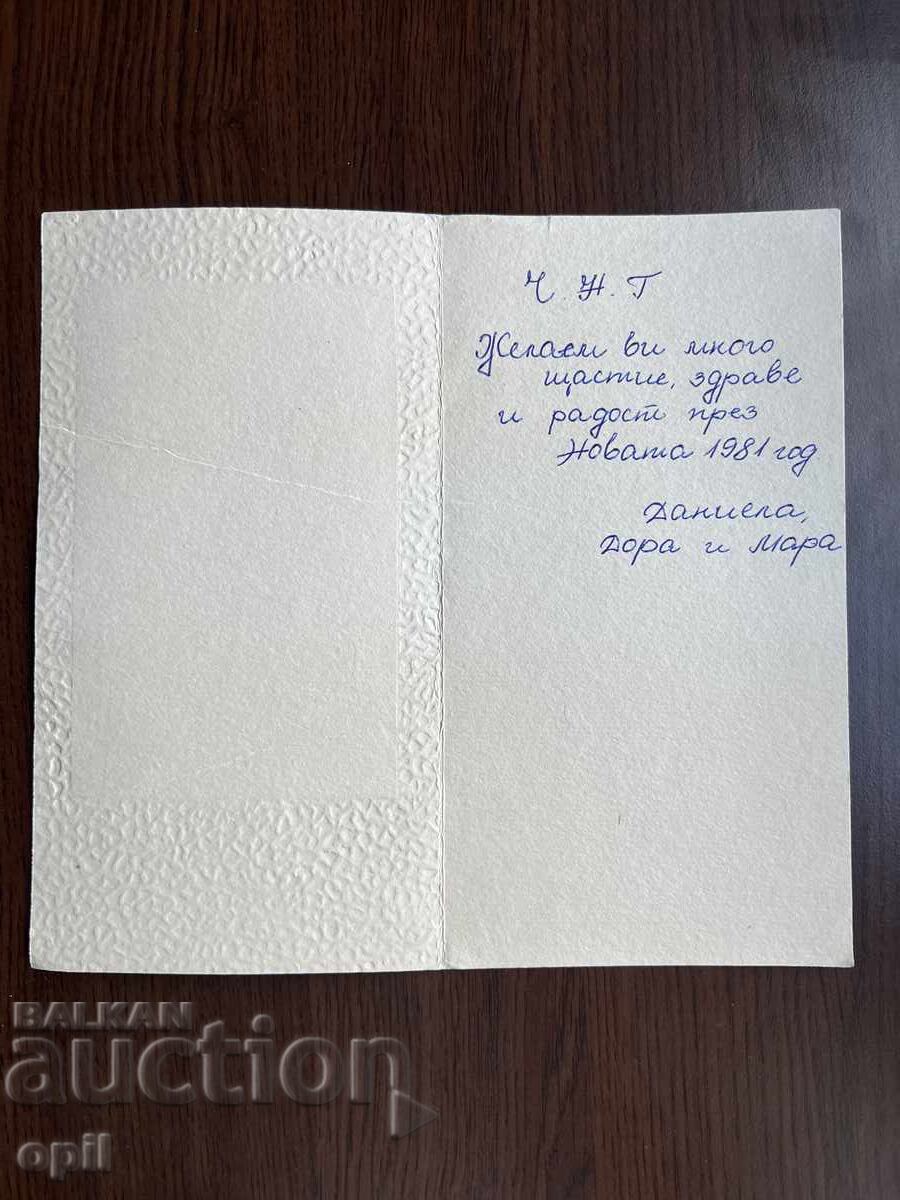 Ч. Н. Г
Желаем ви много
щастие, здраве
и радост през
Новата 1981 год
Даниела,
Дора и Мара
BALKAN
auction
opil